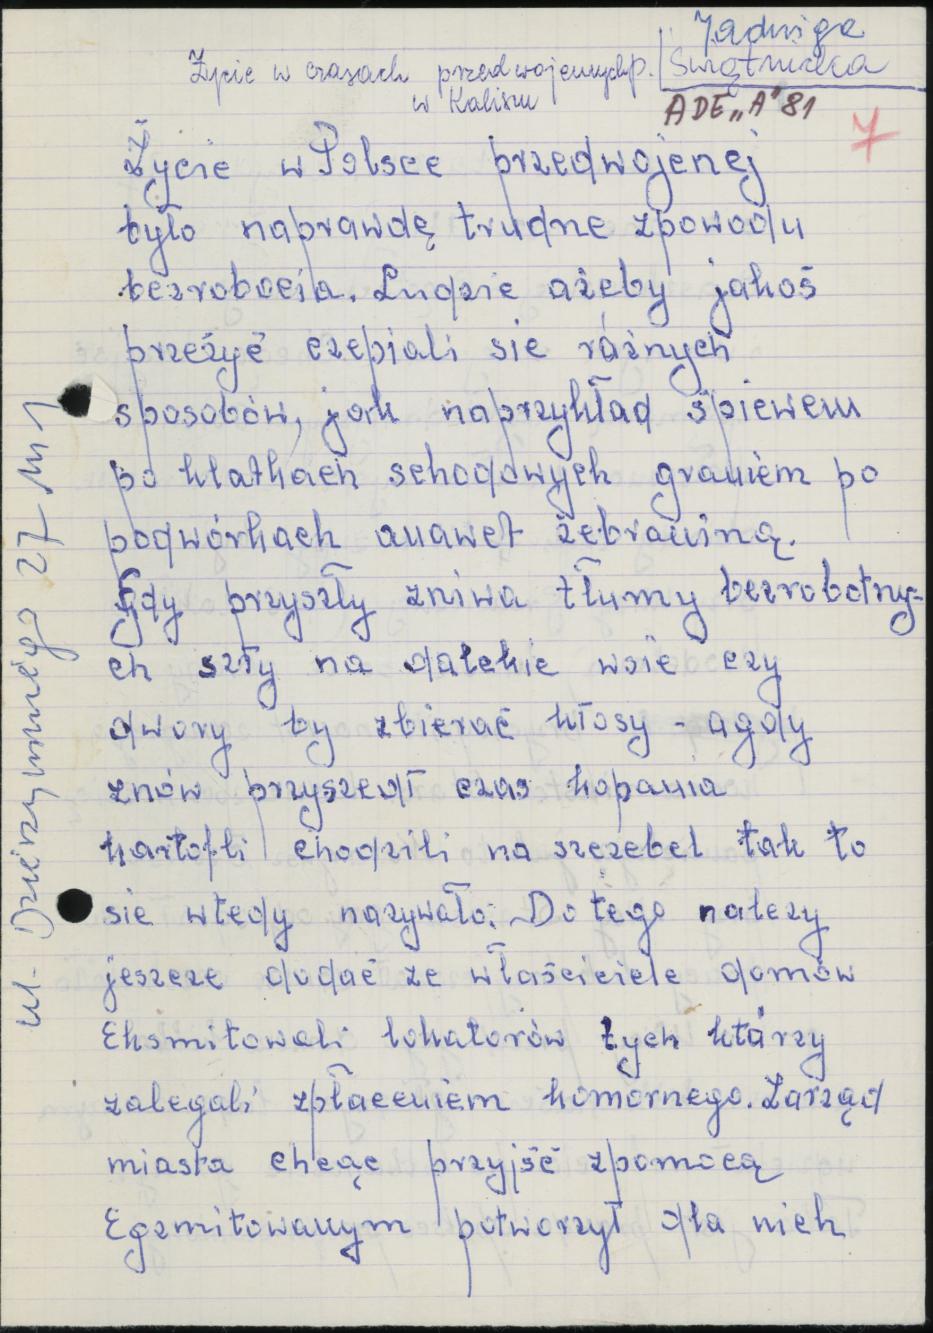 Jadwiga
Świętnicka
Życie w czasach przedwojennych p.
w Kaliszu
ADE „A" 81
7
Życie w Polsce przedwojenej
było naprawdę trudne zpowodu
bezrobocia. Ludzie ażeby jakoś
przeżyć czepiali sie różnych
sposobów, jak naprzykład śpiewem
po klatkach schodowych graniem po
podwórkach anawet żebraniną.
Gdy przyszły żniwa tłumy bezrobotny=
ch szły na dalekie wsie czy
dwory by zbierać kłosy - agdy
znów przyszedł czas kopania
kartofli chodzili na szczebel tak to
sie wtedy nazywało: Do tego należy
jeszcze dodać że właściciele domów
Eksmitowali lokatorów tych którzy
zalegali zpłaceniem komornego. Zarząd
miasta chcąc przyjść zpomocą
Egzmitowanym potworzył dla nich
ul. Dzierżyńskiego 27 m 1